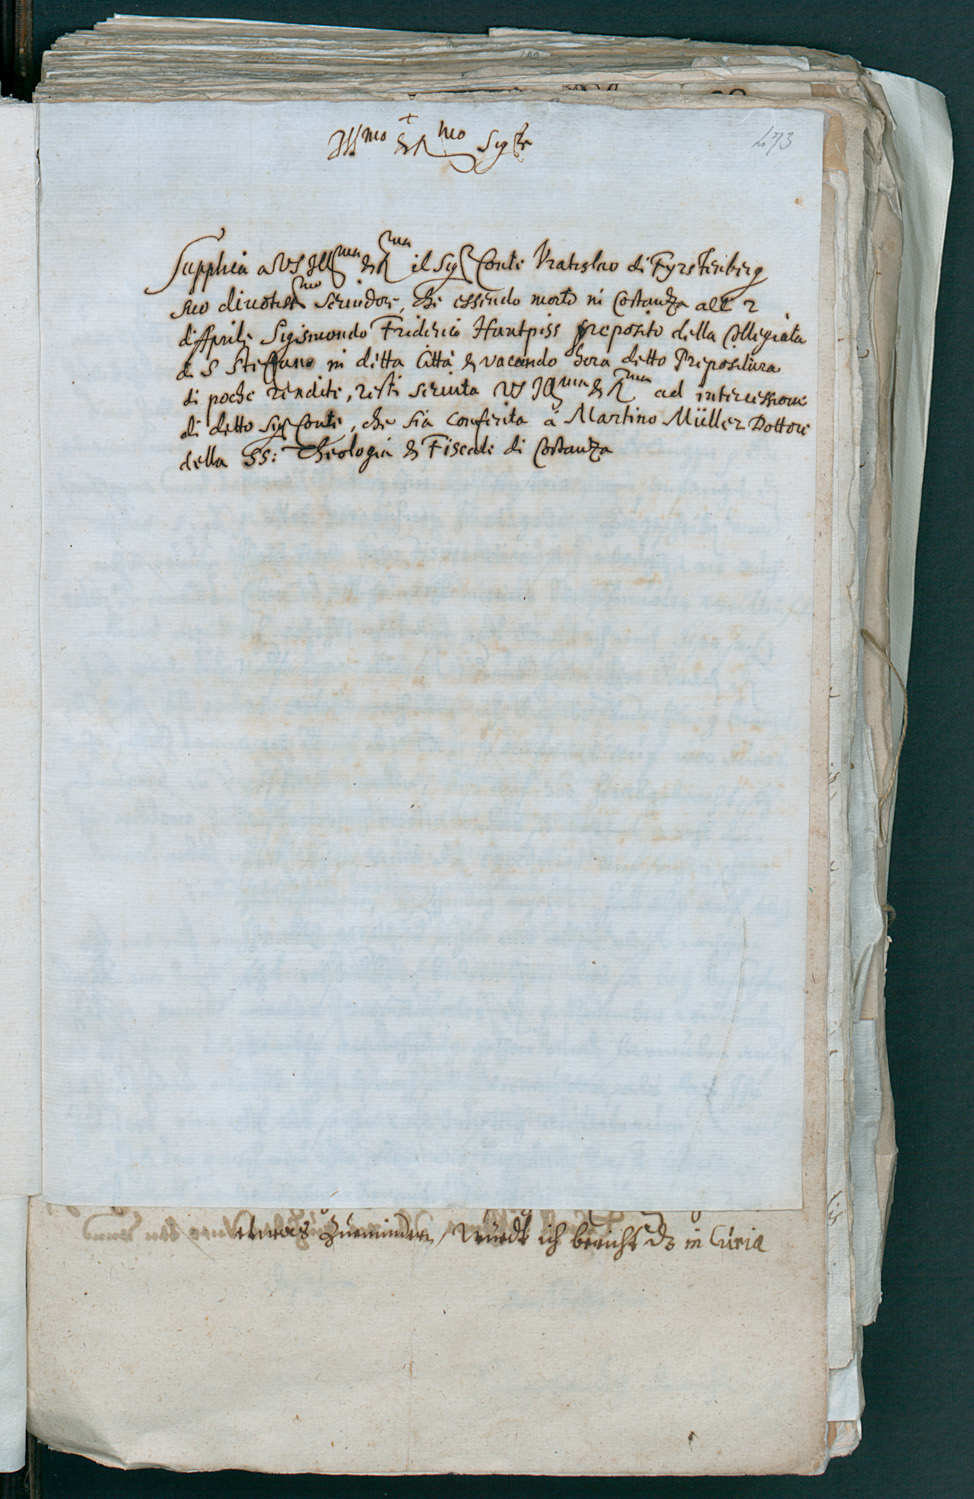 +
Ill.mo & R.mo Sig.re
473
Supplica a VS Ill.ma & R.ma il Sig.r Conte Vratislao di Fyrstenberg
suo diuotiss.mo seruidore, che essendo morto in Costanza alli 2
d'Aprile Sigismondo Friderico Huntpiss preposito della Collegiata
di S Steffano in ditta Città & vacando hora detto Prepositura
di poche rendite, resti seruita VS Ill.ma & R.ma ad intercessione
di detto Sig.r Conte, che sia conferita à Martino Müller Dottore
della SS: Theologia & Fiscale di Costanza
etwas Zuemindern, würdt ich bericht ds in Curia